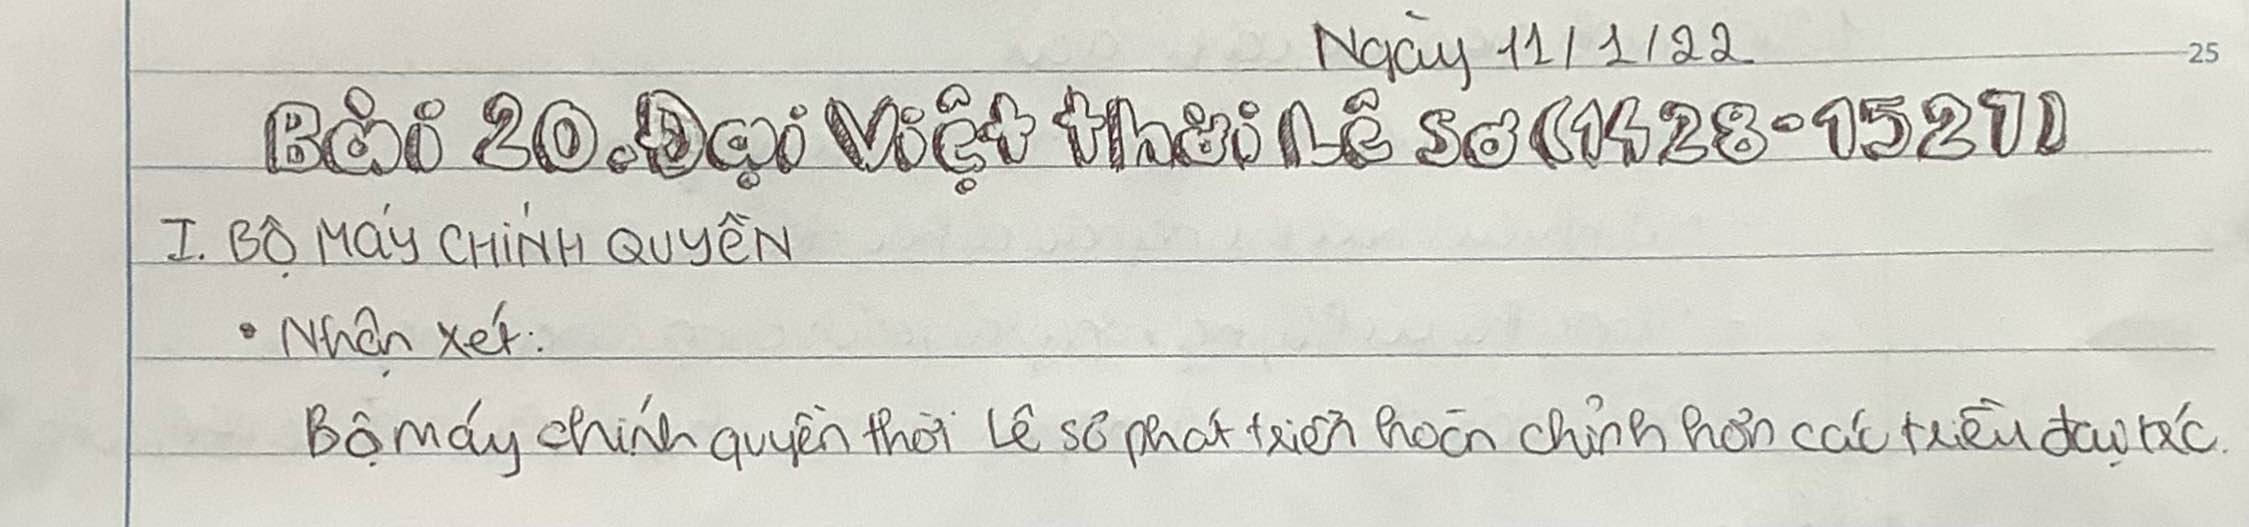 Ngày 11/1/22
25
Bài 20. Đại Việt thời Lê sơ (1428-1527)
I. BỘ MÁY CHÍNH QUYỀN
• Nhận xét:
Bộ máy chính quyền thời Lê sơ phát triển hoàn chỉnh hơn các triều đại trc.